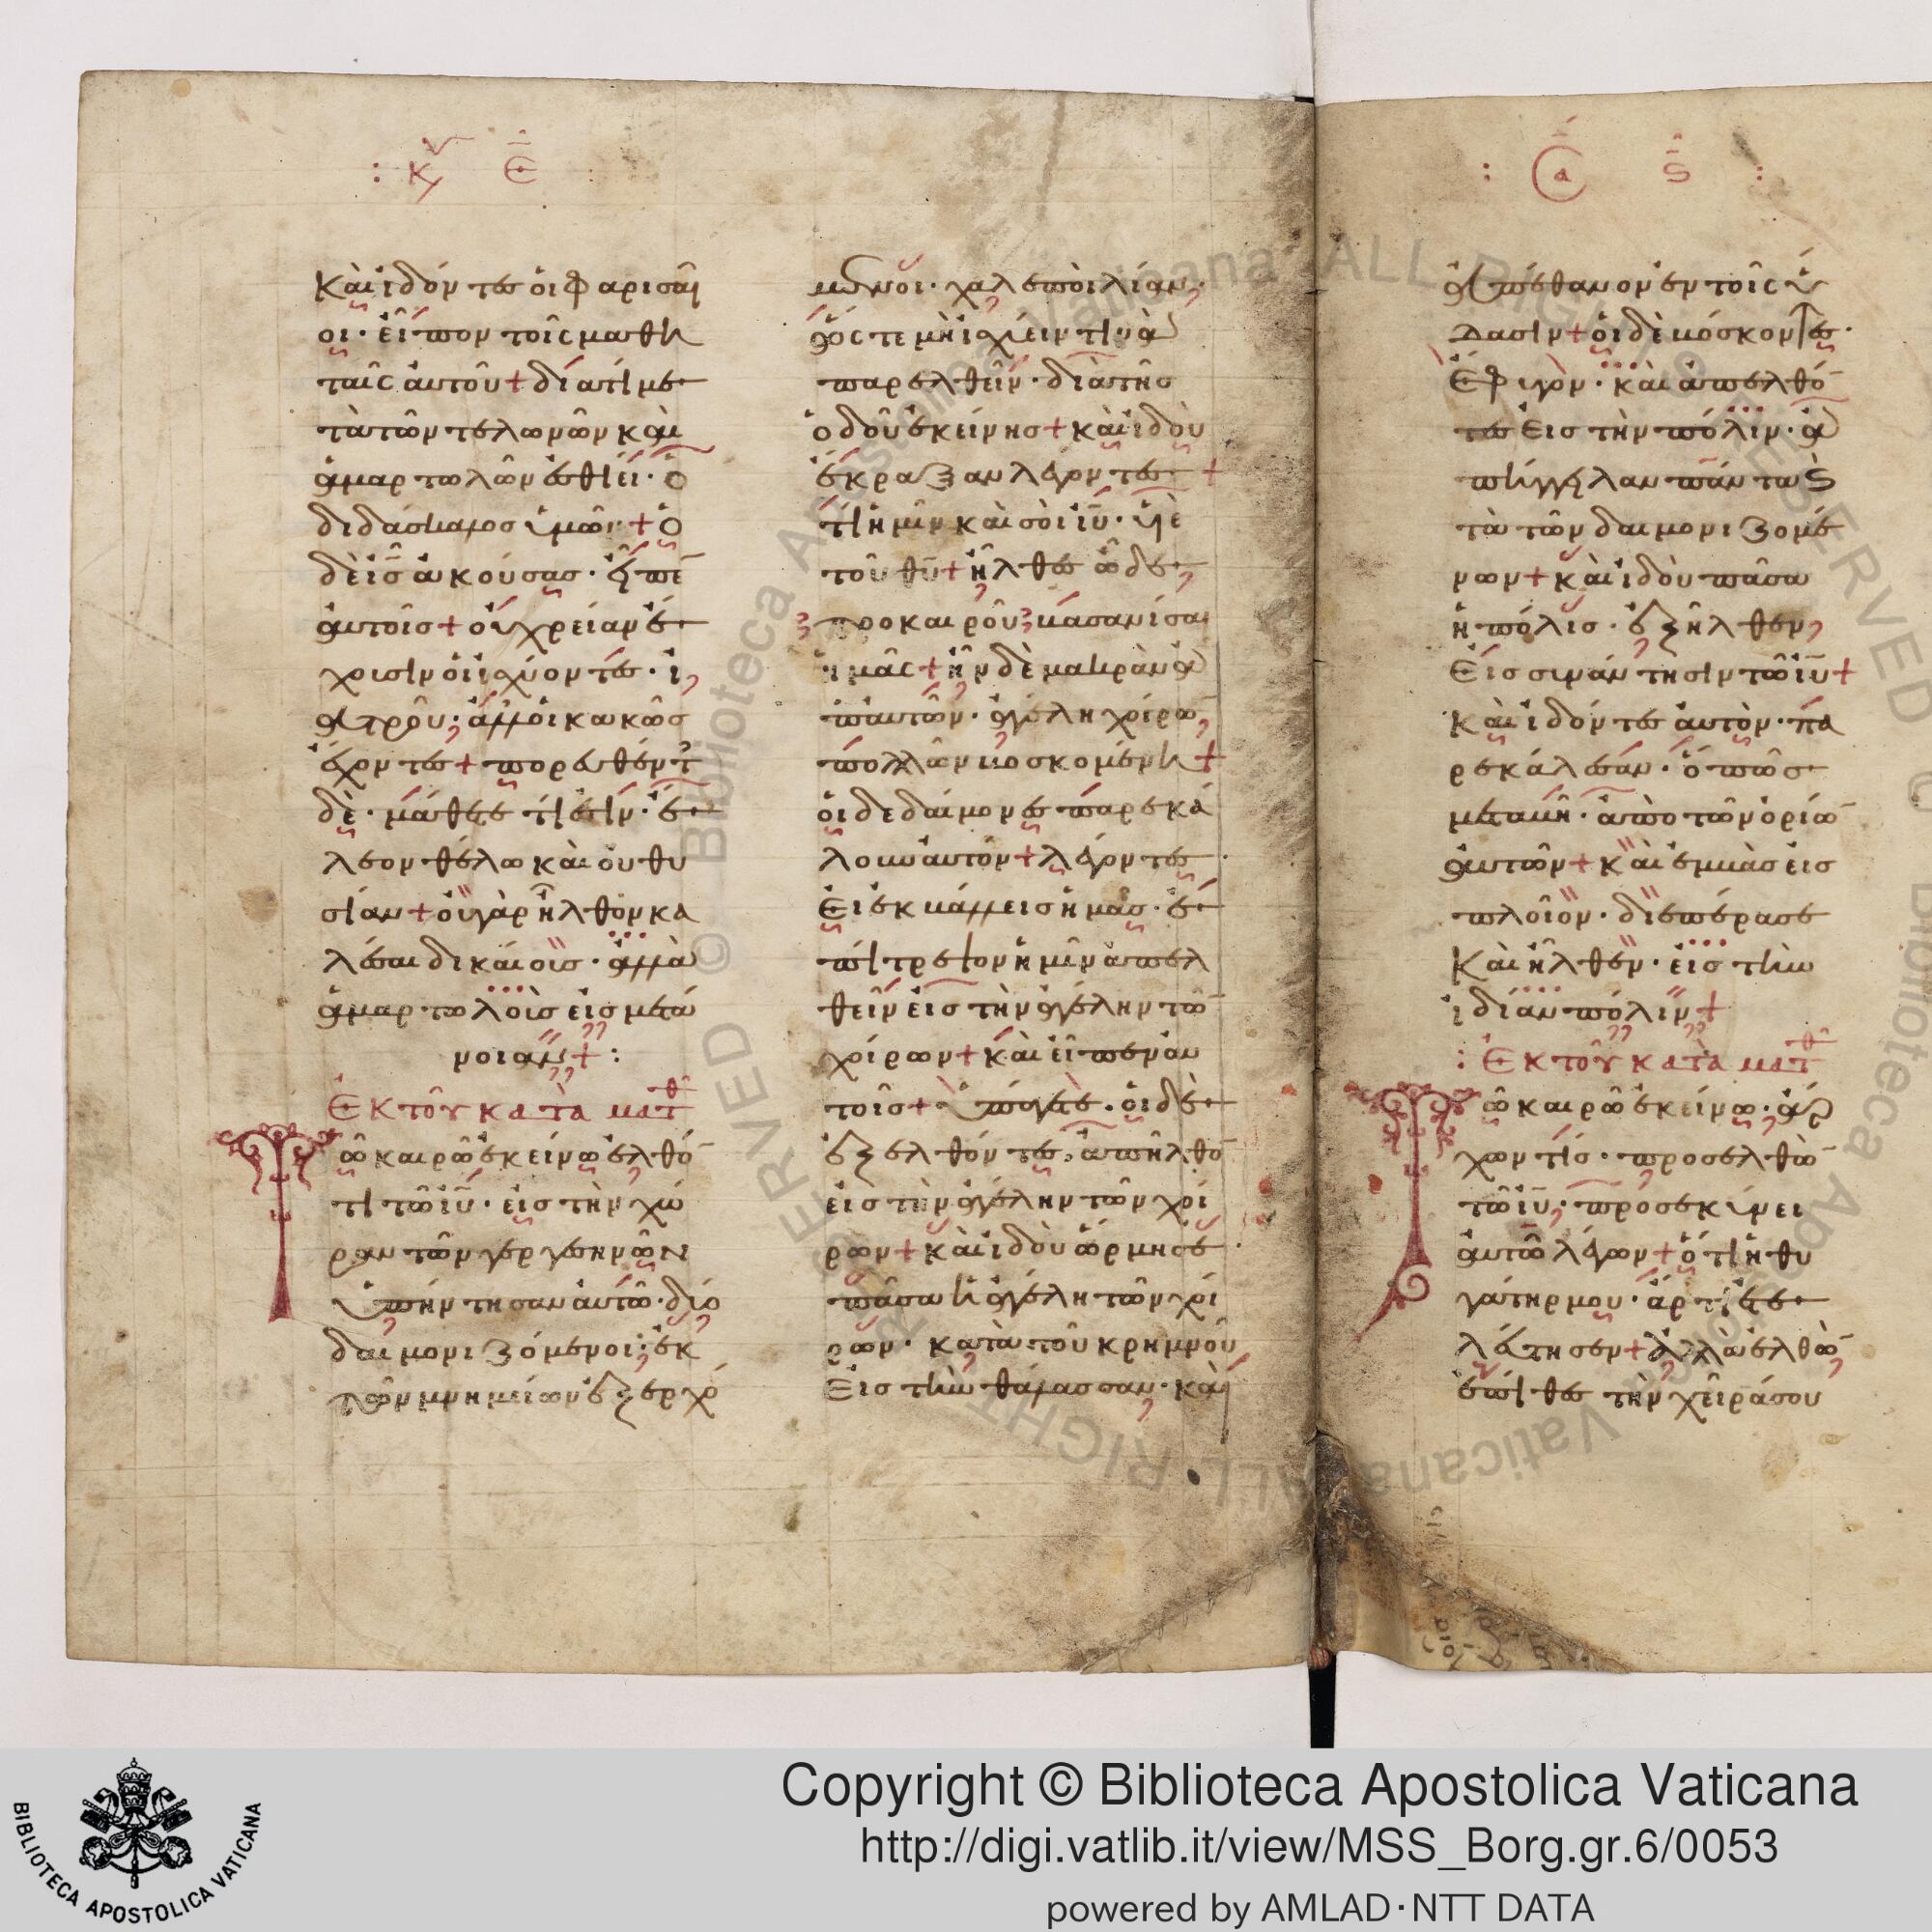 : Κυ Ε :
Καὶ ἰδόντες οἱ Φαρισαῖ
οι· εἶπον τοῖς μαθη
ταῖς αὐτοῦ + διατί με
τὰ τῶν τελωνῶν καὶ
ἁμαρτωλῶν ἐσθίει· ὁ
διδάσκαλος ὑμῶν + ὁ
δὲ ις ἀκούσας· εἶπε
αὐτοῖς + οὐ χρείαν ἔ
χουσιν οἱ ἰσχύοντες· ἰ
ατροῦ· ἀλλ' οἱ κακῶς
ἔχοντες + πορευθέντ
δὲ· μάθετε τί ἐστίν· ἔ
λεον θέλω καὶ οὐ θυ
σίαν + οὐ γὰρ ἦλθον κα
λέσαι δικαίους· ἀλλὰ
ἁμαρτωλοὺς εἰς μετά
νοιαν + :
Ἐκ τοῦ κατὰ ματθ
Τῶ καιρῶ ἐκείνω ἐλθό
τι τῶ ιυ· εἰς τὴν χώ
ραν τῶν γεργεσηνῶν
ὑπήντησαν αὐτῶ· δύο
δαιμονιζόμενοι· ἐκ
τῶν μνημείων ἐξερχό
μενοι· χαλεποὶ λίαν·
ὥστε μὴ ἰσχύειν τινὰ
παρελθεῖν· διὰ τῆς
ὁδοῦ ἐκείνης + καὶ ἰδοὺ
ἔκραξαν λέγοντες +
τί ἡμῖν καὶ σοὶ ιυ· υἱὲ
τοῦ θυ + ἦλθες ὧδε
προ καιροῦ βασανίσαι
ἡμᾶς + ἦν δὲ μακρὰν ἀ
π' αὐτῶν· ἀγέλη χοίρω
πολλῶν βοσκομένη +
οἱ δε δαίμονες παρεκά
λουν αὐτὸν + λέγοντες·
Εἰ ἐκβάλλεις ἡμᾶς· ἐ
πίτρεψον ἡμῖν ἀπελ
θεῖν εἰς τὴν ἀγέλην τῶ
χοίρων + καὶ εἶπεν αὐ
τοῖς + ὑπάγετε· οἱ δὲ
ἐξελθόντες, ἀπῆλθο
εἰς τὴν ἀγέλην τῶν χοί
ρων + καὶ ἰδοὺ ὥρμησε·
πᾶσα ἡ ἀγέλη τῶν χοί
ρων· κατὰ τοῦ κρημνοῦ
Εἰς τὴν θάλασσαν· καὶ
: Σα ς :
ἀπέθανον ἐν τοῖς ὕ
δασιν + οἱ δὲ βόσκοντες·
Ἔφυγον· καὶ ἀπελθό
τες εἰς τὴν πόλιν· ἀ
πήγγειλαν πάντα ϗ
τὰ τῶν δαιμονιζομέ
νων + καὶ ἰδοὺ πᾶσα
ἡ πόλις· ἐξῆλθεν
Εἰς συνάντησιν τῶ ιυ +
Καὶ ἰδόντες αὐτὸν· πα
ρεκάλεσαν· ὅπως
μεταβῆ· ἀπὸ τῶν ὁρίω
αὐτῶν + καὶ ἐμβὰς εἰς
πλοῖον· διεπέρασε
Καὶ ἦλθεν· εἰς τὴν
ἰδίαν πόλιν +
: Ἐκ τοῦ κατὰ ματθ
Τῶ καιρῶ ἐκείνω· ἄρ
χων τίς· προσελθὼ
τῶ ιυ· προσεκύνει
αὐτῶ λέγων + ὅτι ἡ θυ
γάτηρ μου· ἄρτι ἐτε
λεύτησεν + ἀλλὰ ἐλθὼ
ἐπίθες τὴν χεῖρά σου
Copyright © Biblioteca Apostolica Vaticana
http://digi.vatlib.it/view/MSS_Borg.gr.6/0053
powered by AMLAD·NTT DATA
BIBLIOTECA APOSTOLICA VATICANA